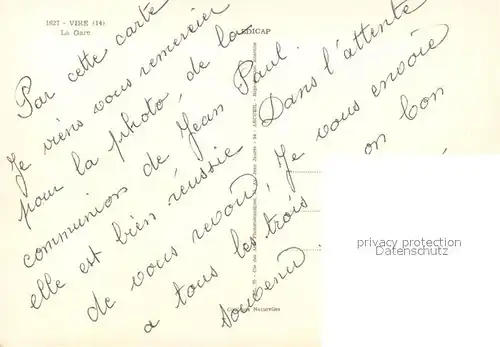 1627 - VIRE (14)
La Gare
EDICAP
Par cette carte
Je viens vous remercier
pour la photo, de la
communion de Jean Paul.
elle est bien réussie Dans l'attente
de vous revoir Je vous envoie
a tous les trois on bon
souvenir.
privacy protection
Datenschutz